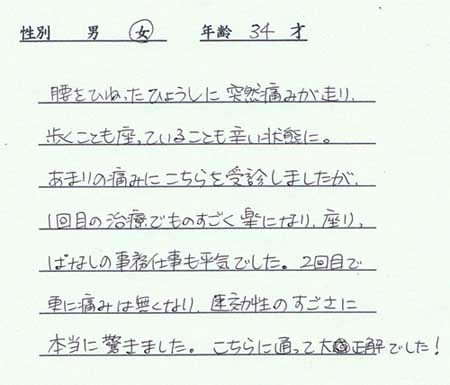 性別 男 女 年齢 34 才
腰をひねったひょうしに突然痛みが走り、
歩くことも座っていることも辛い状態に。
あまりの痛みにこちらを受診しましたが、
1回目の治療でものすごく楽になり、座りっ
ぱなしの事務仕事も平気でした。2回目で
更に痛みは無くなり、即効性のすごさに
本当に驚きました。こちらに通って大正解でした!